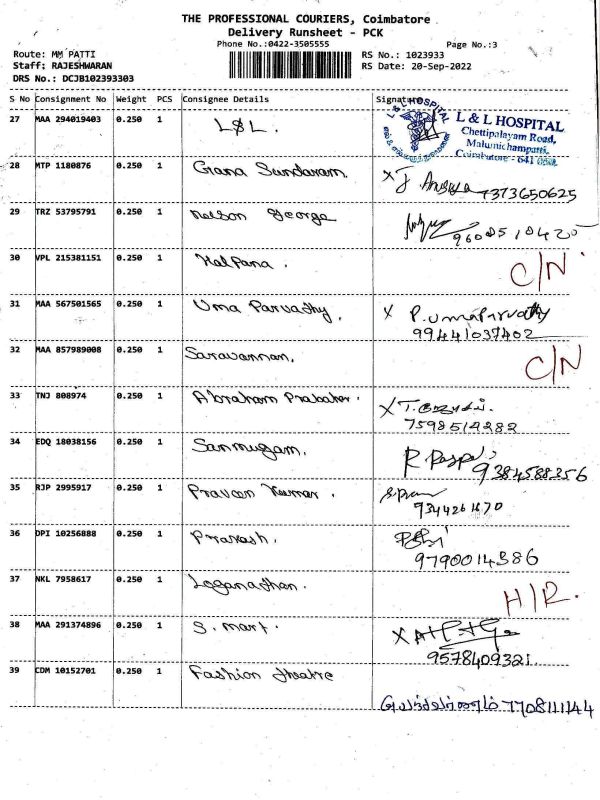 THE PROFESSIONAL COURIERS, Coimbatore
Delivery Runsheet - PCK
Phone No.:0422-3505555
Page No.:3
Route: MM PATTI
RS No.: 1023933
Staff: RAJESHWARAN
RS Date: 20-Sep-2022
DRS No.: DCJB102393303
S No Consignment No Weight PCS Consignee Details Signature
27 MAA 294019403 0.250 1 L&L.
L & L HOSPITAL
L & L HOSPITAL
Chettipalayam Road,
Malumichampatti,
Coimbatore - 641 050.
28 MTP 1180876 0.250 1 Gana Sundaram X J
7373650625
29 TRZ 53795791 0.250 1 Nelson George
30 VPL 215381151 0.250 1 Kalpana. C/N
31 MAA 567501565 0.250 1 Uma Parvadhy. X P. UmaParvathy
99441037402
32 MAA 857989008 0.250 1 Saravannan. C/N
33 TNJ 808974 0.250 1 Abraham Prabaker. X T.
7598514282
34 EDQ 18038156 0.250 1 Sanmugam. R
9384588356
35 RJP 2995917 0.250 1 Praveen Kumar.
36 DPI 10256888 0.250 1 Prakash.
9790014386
37 NKL 7958617 0.250 1 Loganadhan. H/R.
38 MAA 291374896 0.250 1 S. mart. X
9578409321.
39 CDM 10152701 0.250 1 Fashion theatre
7708111144